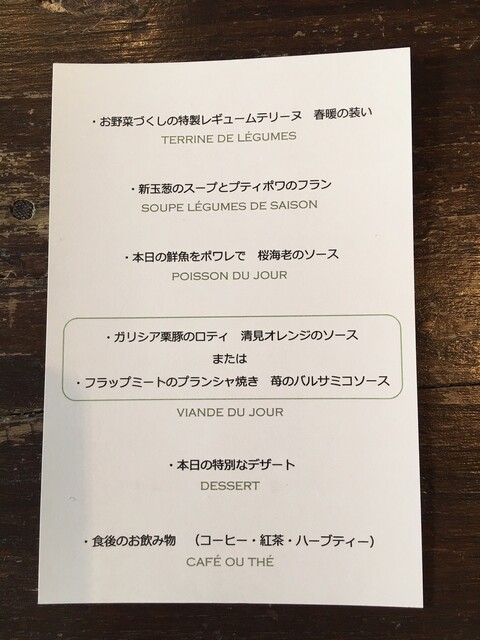 ・お野菜づくしの特製レギュームテリーヌ　春暖の装い
TERRINE DE LÉGUMES
・新玉葱のスープとプティポワのフラン
SOUPE LÉGUMES DE SAISON
・本日の鮮魚をポワレで　桜海老のソース
POISSON DU JOUR
・ガリシア栗豚のロティ　清見オレンジのソース
または
・フラップミートのプランシャ焼き　苺のバルサミコソース
VIANDE DU JOUR
・本日の特別なデザート
DESSERT
・食後のお飲み物　（コーヒー・紅茶・ハーブティー）
CAFÉ OU THÉ